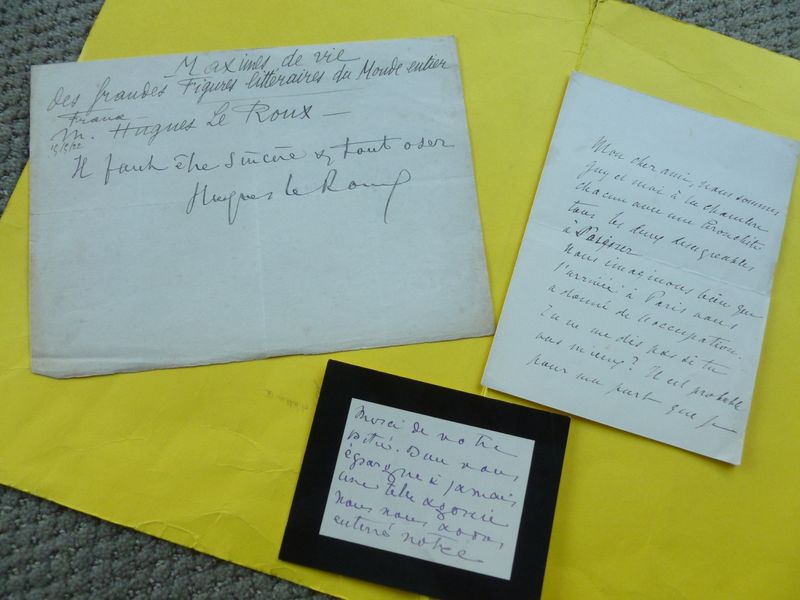 Maximes de vie
des Grandes Figures littéraires du Monde entier
France
M. Hugues Le Roux —
Il faut être sincère & tout oser
Hugues le Roux
Mon cher ami, nous sommes
Guy et moi à la chambre
chacun avec une bronchite
tous les deux désagréables
à soigner
nous imaginons bien que
l'arrivée à Paris vous
a donné de l'occupation.
Tu ne me dis pas si tu
vas mieux? Il est probable
pour ma part que je
Merci de votre
pitié. Dieu vous
épargne à jamais
une telle agonie
nous nous
enterré notre